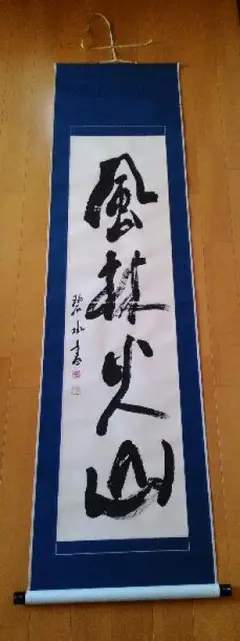 風林火山
碧水書